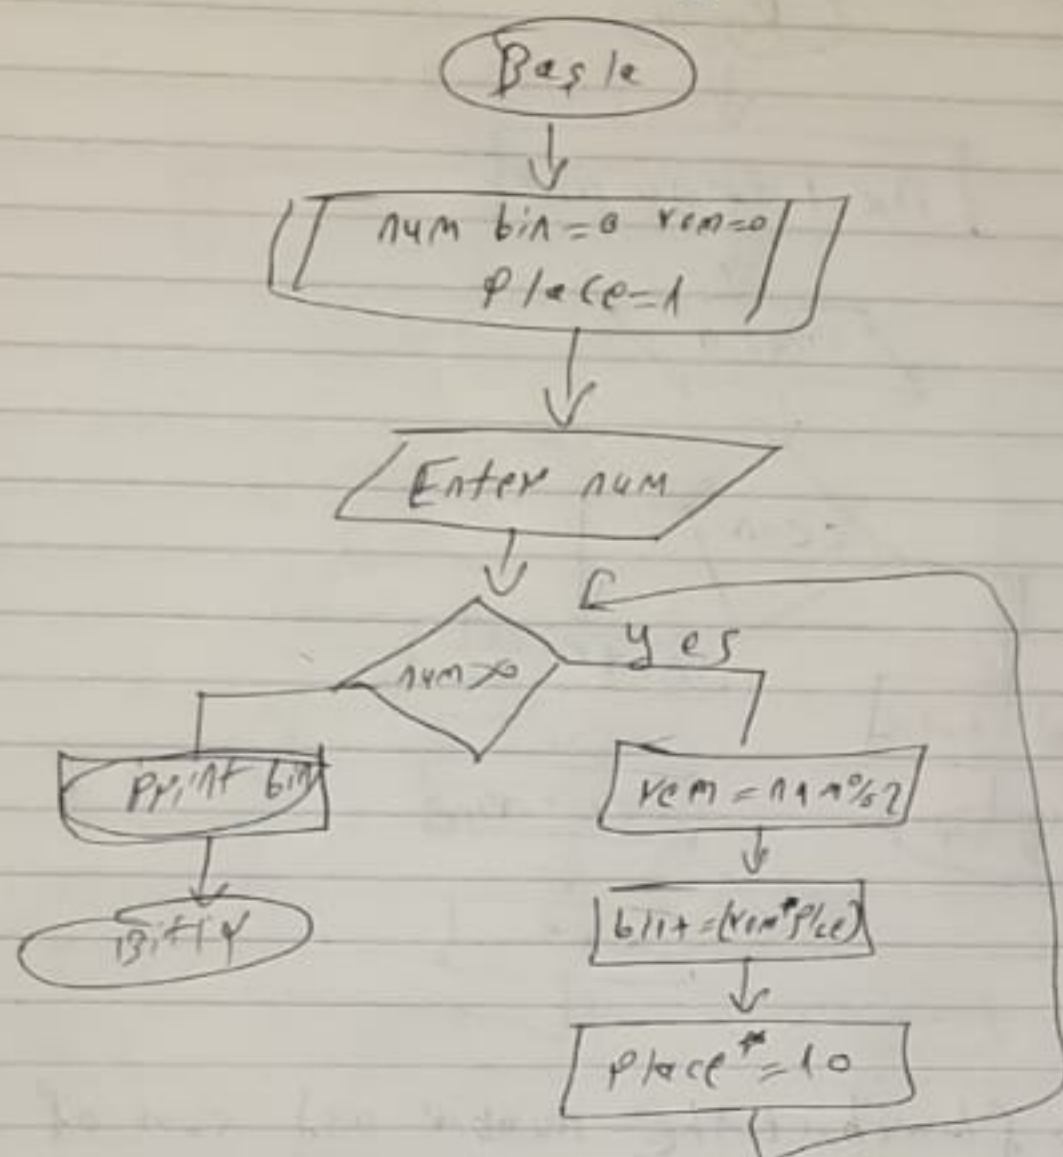 Başla
num bin=0 rem=0
place=1
Enter num
num>0
yes
print bin
rem=num%2
bin+=(rem*place)
place*=10